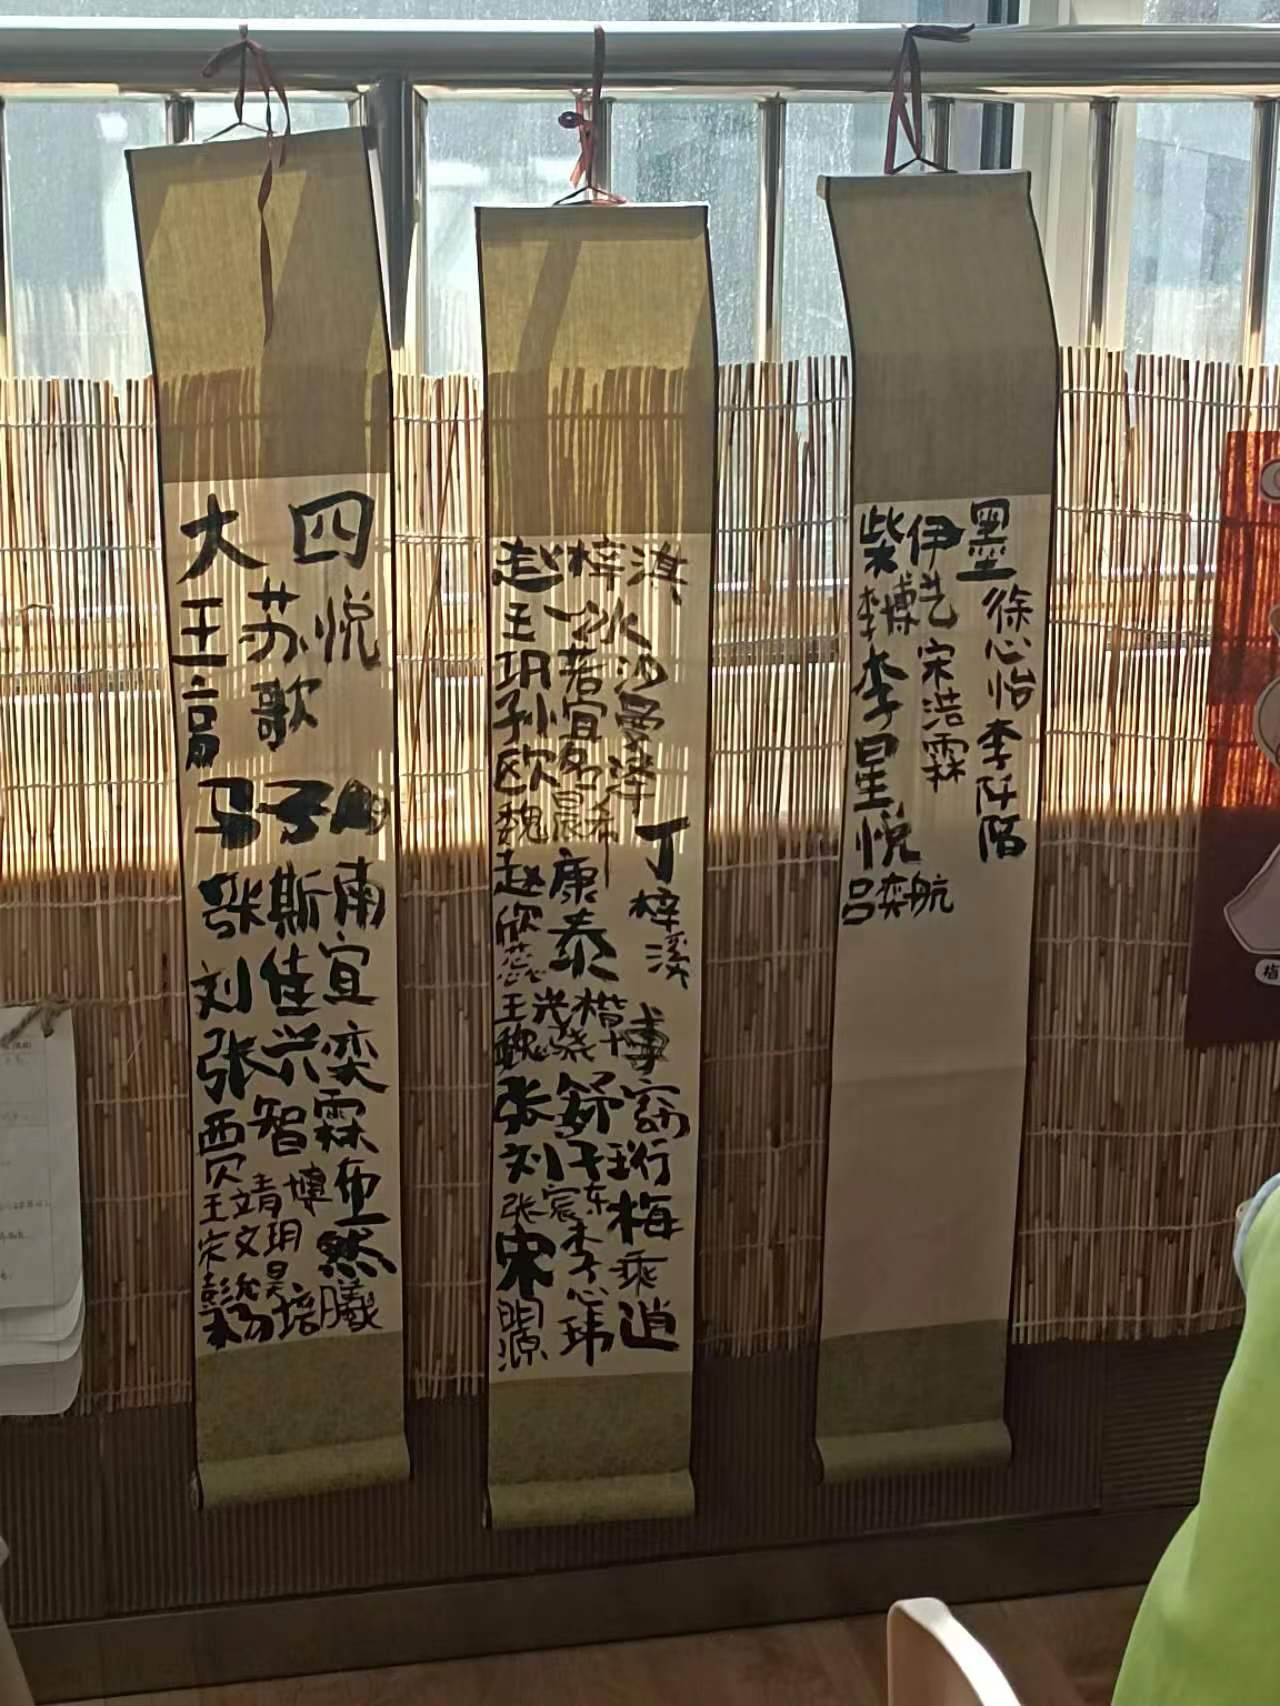 大四
王苏悦
高歌
马子
张斯南
刘佳宜
张兴奕
贾智霖
王靖博
宋文玥
赵梓淇
王一冰
玥若汐
孙宜曼
欧名泽
魏晨希
丁梓溪
赵康泰
欣蕊
王光楷
张舒窈
刘子珩
张宸东
宋李心玮
梅乘逍
柴伊墨
李博艺
徐心怡
宋浩霖
李阡陌
李星悦
吕奕航